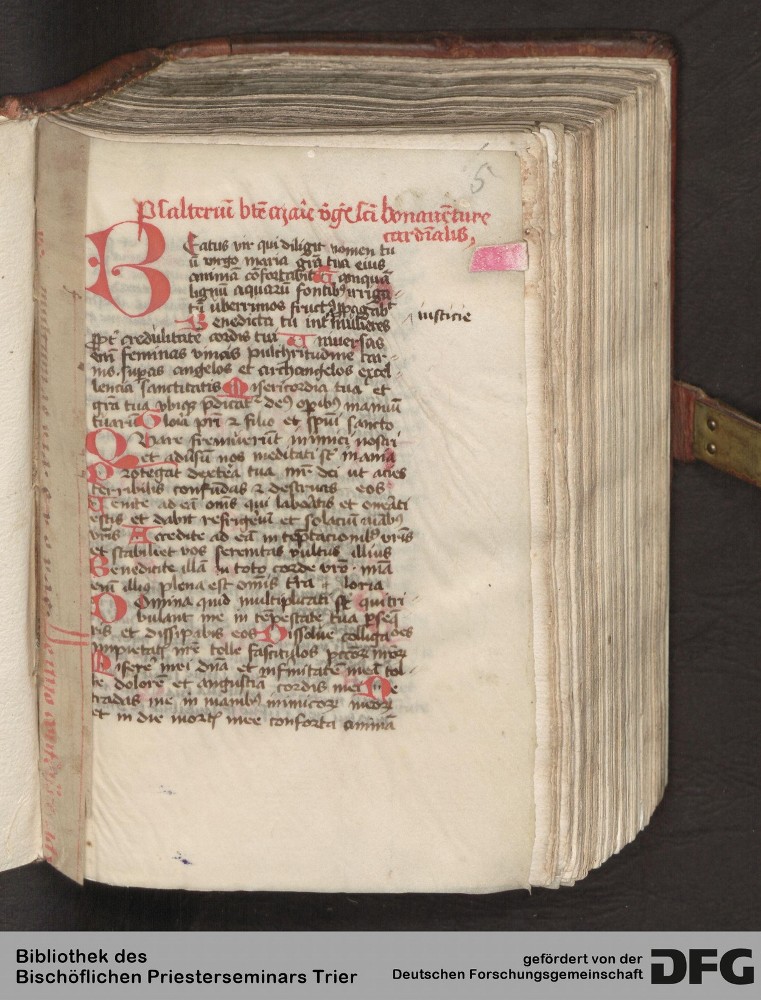 5
Psalteriū btē marie v̄gīs sci bonauēture
cardīalis,
Beatus vir qui diligit nomen tu
ū virgo maria grā tua eius
animā cōfortabit Tāquā
lignū aquarū fontibꝰ irriga
tū uberrimos fructꝰ ꝓpagabit
Benedicta tu int̄ mulieres iusticie
ꝓpt̄ credulitatē cordis tui Vniuersas
em̄ feminas vincis pulchritudine car
nis. supas angelos et archangelos excel
lencia sanctitatis Misericordia tua et
grā tua vbiqꝫ p̄dicat᷑ deꝰ opibꝰ manuū
tuarū Gloīa prī ⁊ filio et spūi sancto
Quare fremuerūt inimici nostri
et adūsū nos meditati st̄ inania
Protegat dextera tua mr̄ dei ut acies
terribilis confūdas ⁊ destruas eos
Venite ad eā om̄s qui laboātis et
estis et dabit refrigeriū et solaciū aīabꝰ
vr̄is Accedite ad eā in tēptacionibꝰ vr̄is
et stabiliet vos serenitas vultus illius
Benedicite illā in toto corde vr̄o mīa
em̄ illiꝰ plena est om̄is t̄ra Gloria
Domina quid multiplicati st̄ qui tri
bulant me in tēpestate tua ꝑseq
ris et dissipabis eos Dissolue colligacōes
impietatꝭ nr̄e tolle fasciculos pcc̄oꝝ nr̄oꝝ
Misere mei dn̄a et infirmitatē meā tol
le dolorē et angustiā cordis mei Ne
tradas me in manibꝰ inimicoꝝ meoꝝ
et in die mortꝭ mee conforta animā
Bibliothek des
Bischöflichen Priesterseminars Trier
gefördert von der
Deutschen Forschungsgemeinschaft
DFG